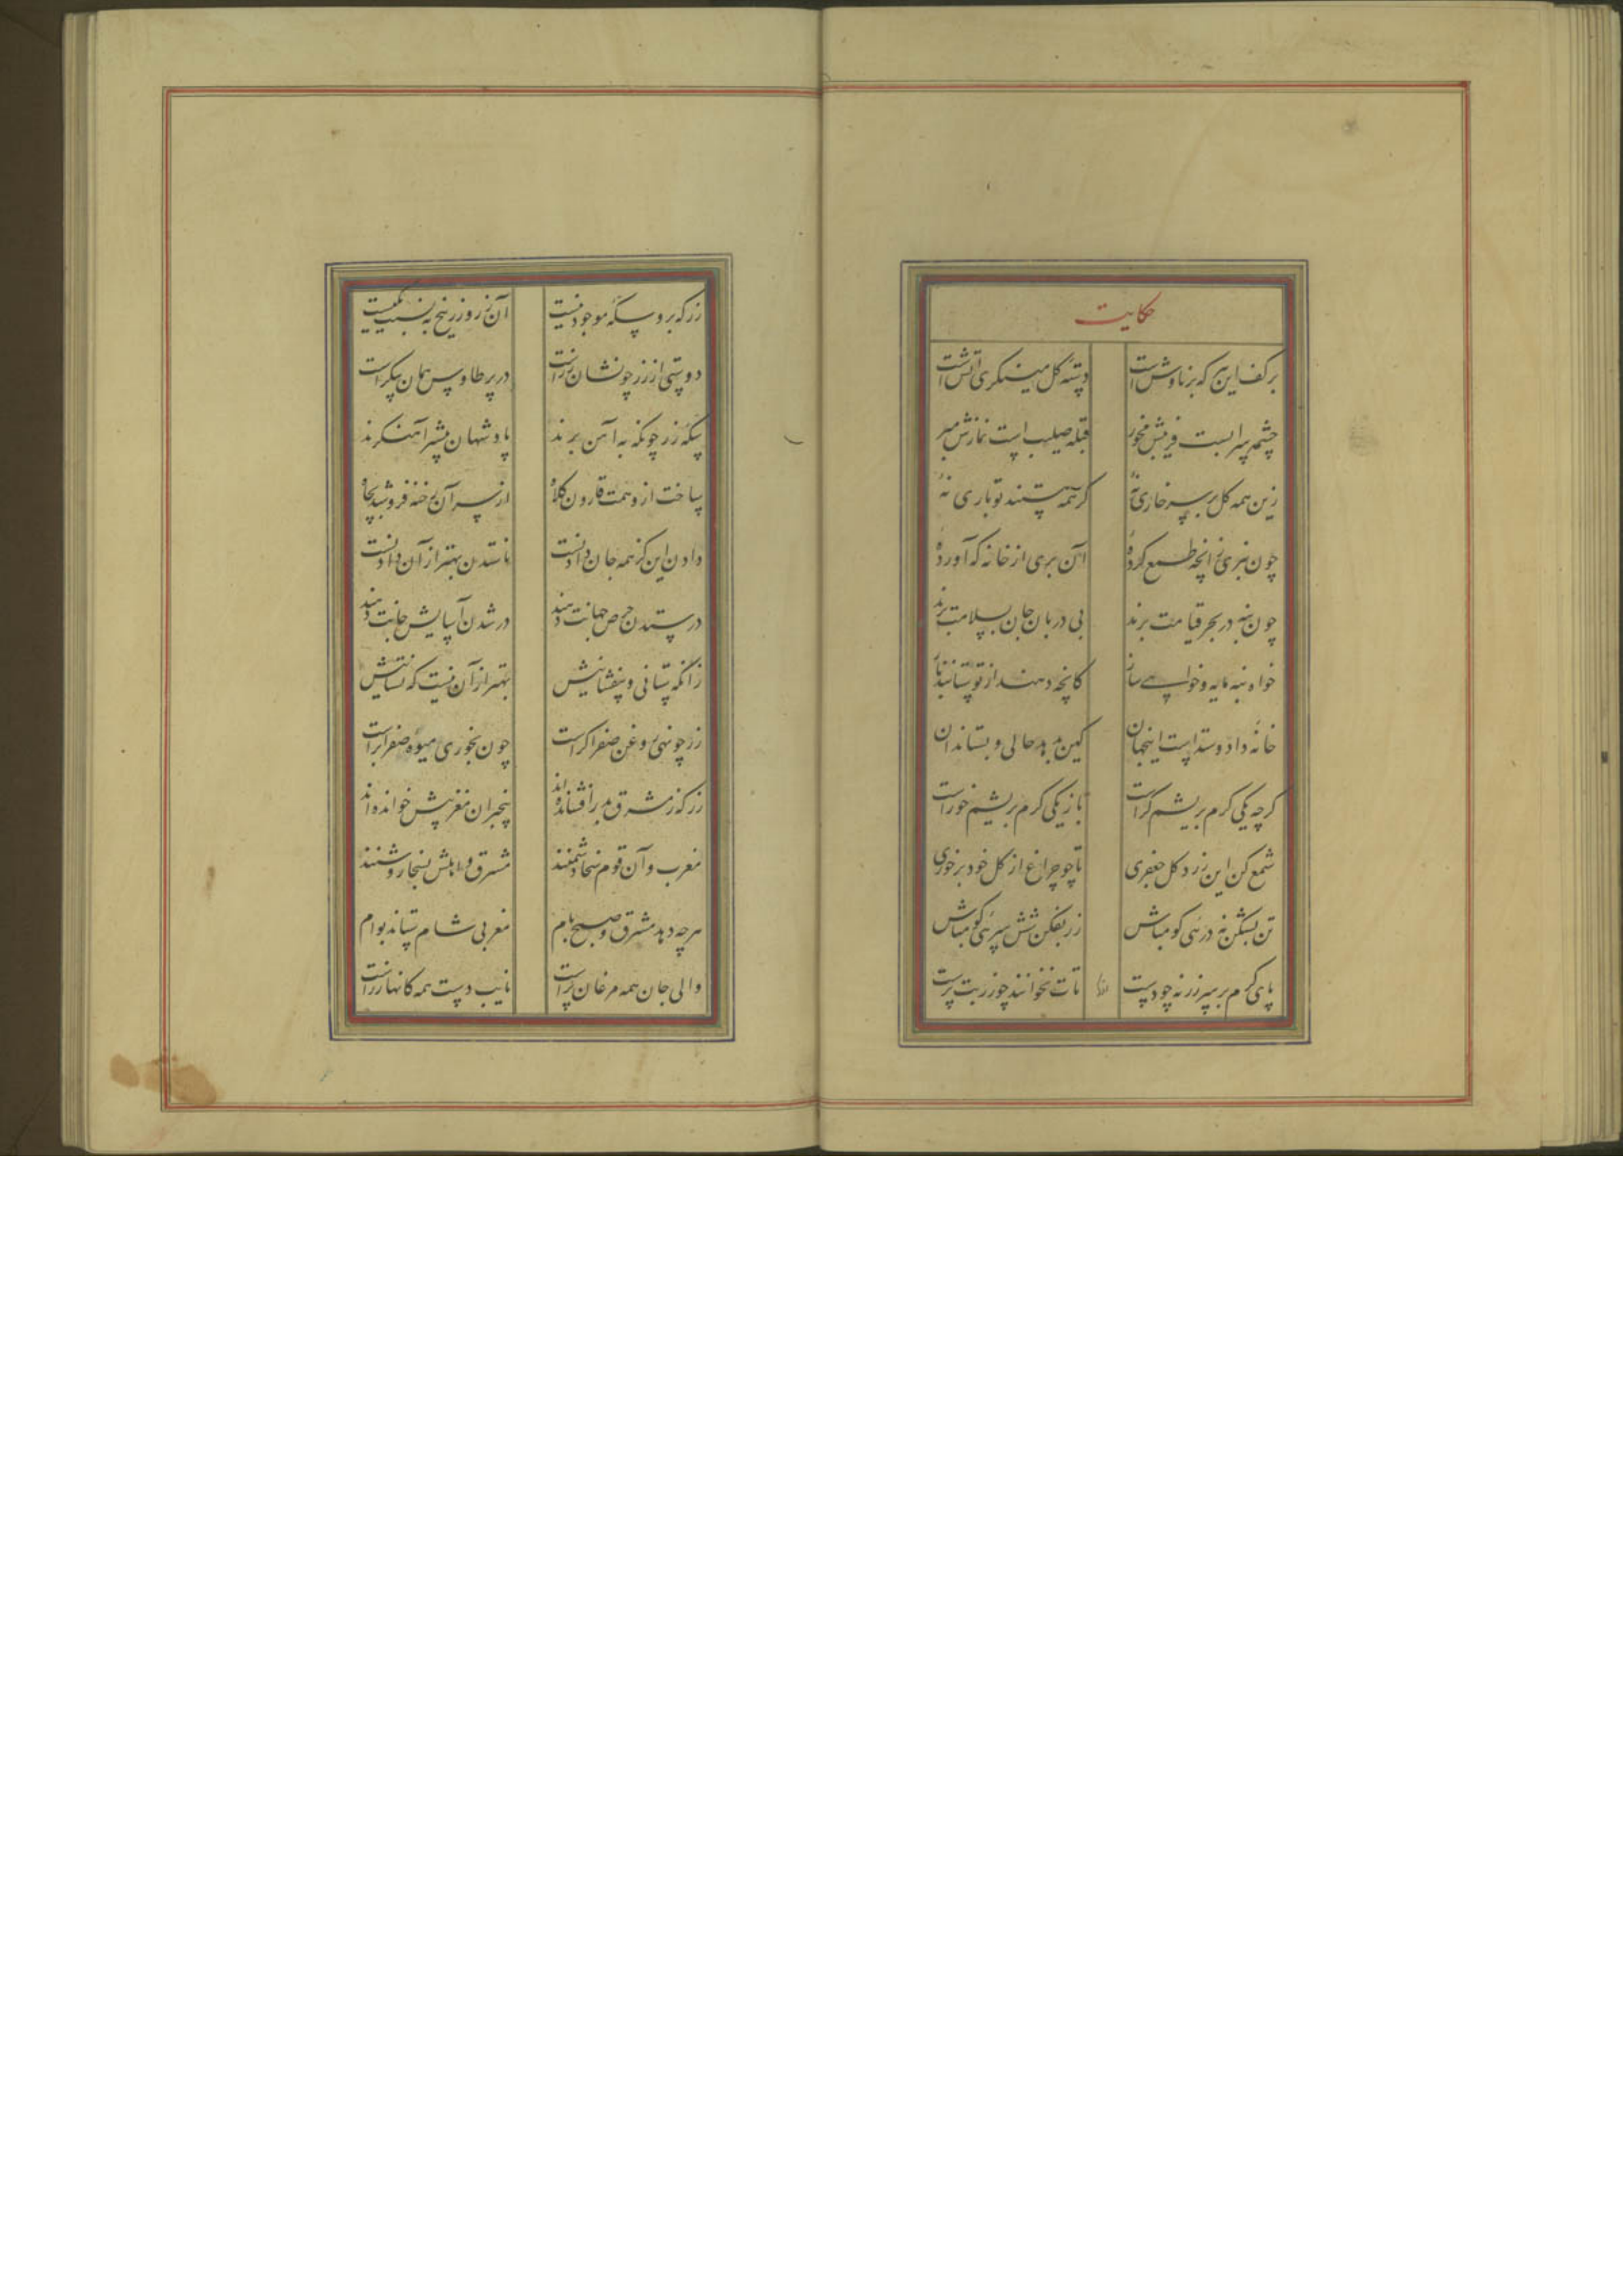 حکایت
برکف این پیر که برناوش است دسته گل مینگری آتش است
چشمه سرابست فریبش مخور قبله صلیب است نمازش مبر
زین همه گل بر سر خاری نهٔ گر همه هستند تو باری نهٔ
چون نبری زانچه طمع کردهٔ آن بری از خانه که آوردهٔ
چون بنه در بحر قیامت برند بی دربان جان بسلامت برند
خواه بنه مایه و خواهی بباز کانچه دهند از تو ستانند باز
خانهٔ داد و ستد است اینجهان کین بدهد حالی و بستاند آن
گرچه یکی کرم بریشم گر است باز یکی کرم بریشم خور است
شمع کن این زرد گل جعفری تا چو چراغ از گل خود برخوری
تن بشکن نه درئی گو مباش زر بفکن شش سرئی گو مباش
پای کرم بر سر زر نه چو دست تات نخوانند چو زر بت پرست
زر که برو سکهٔ موجود نیست آن زر و زرنیخ به نسبت یکیست
دوستی از زر چو نشان زر است در پر طاوس همان پیکر است
سکهٔ زر چونکه به آهن برند پادشهان بیشتر آهنگرند
ساخت ازو همت قارون کلاه از سر آن رخنه فروشد بچاه
دادن این کز همه جان دادنست ناستدن بهتر از آن دادنست
در ستدن حرص جهانت دهند در شدن آسایش جانت دهند
زانکه ستانی و بیفشانیش بهتر از آن نیست که نستانیش
زر چو نهی روغن صفراگر است چون بخوری میوهٔ صفرابر است
زر که ز مشرق بدر افشانده اند بیخبران مغربیش خوانده اند
مغرب و آن قوم سخا دشمنند مشرق و اهلش بسخا روشنند
هر چه دهد مشرق و صبح بام مغربی شام ستاند بوام
والی جان همه مرغان است نایب دست همه کانها زر است